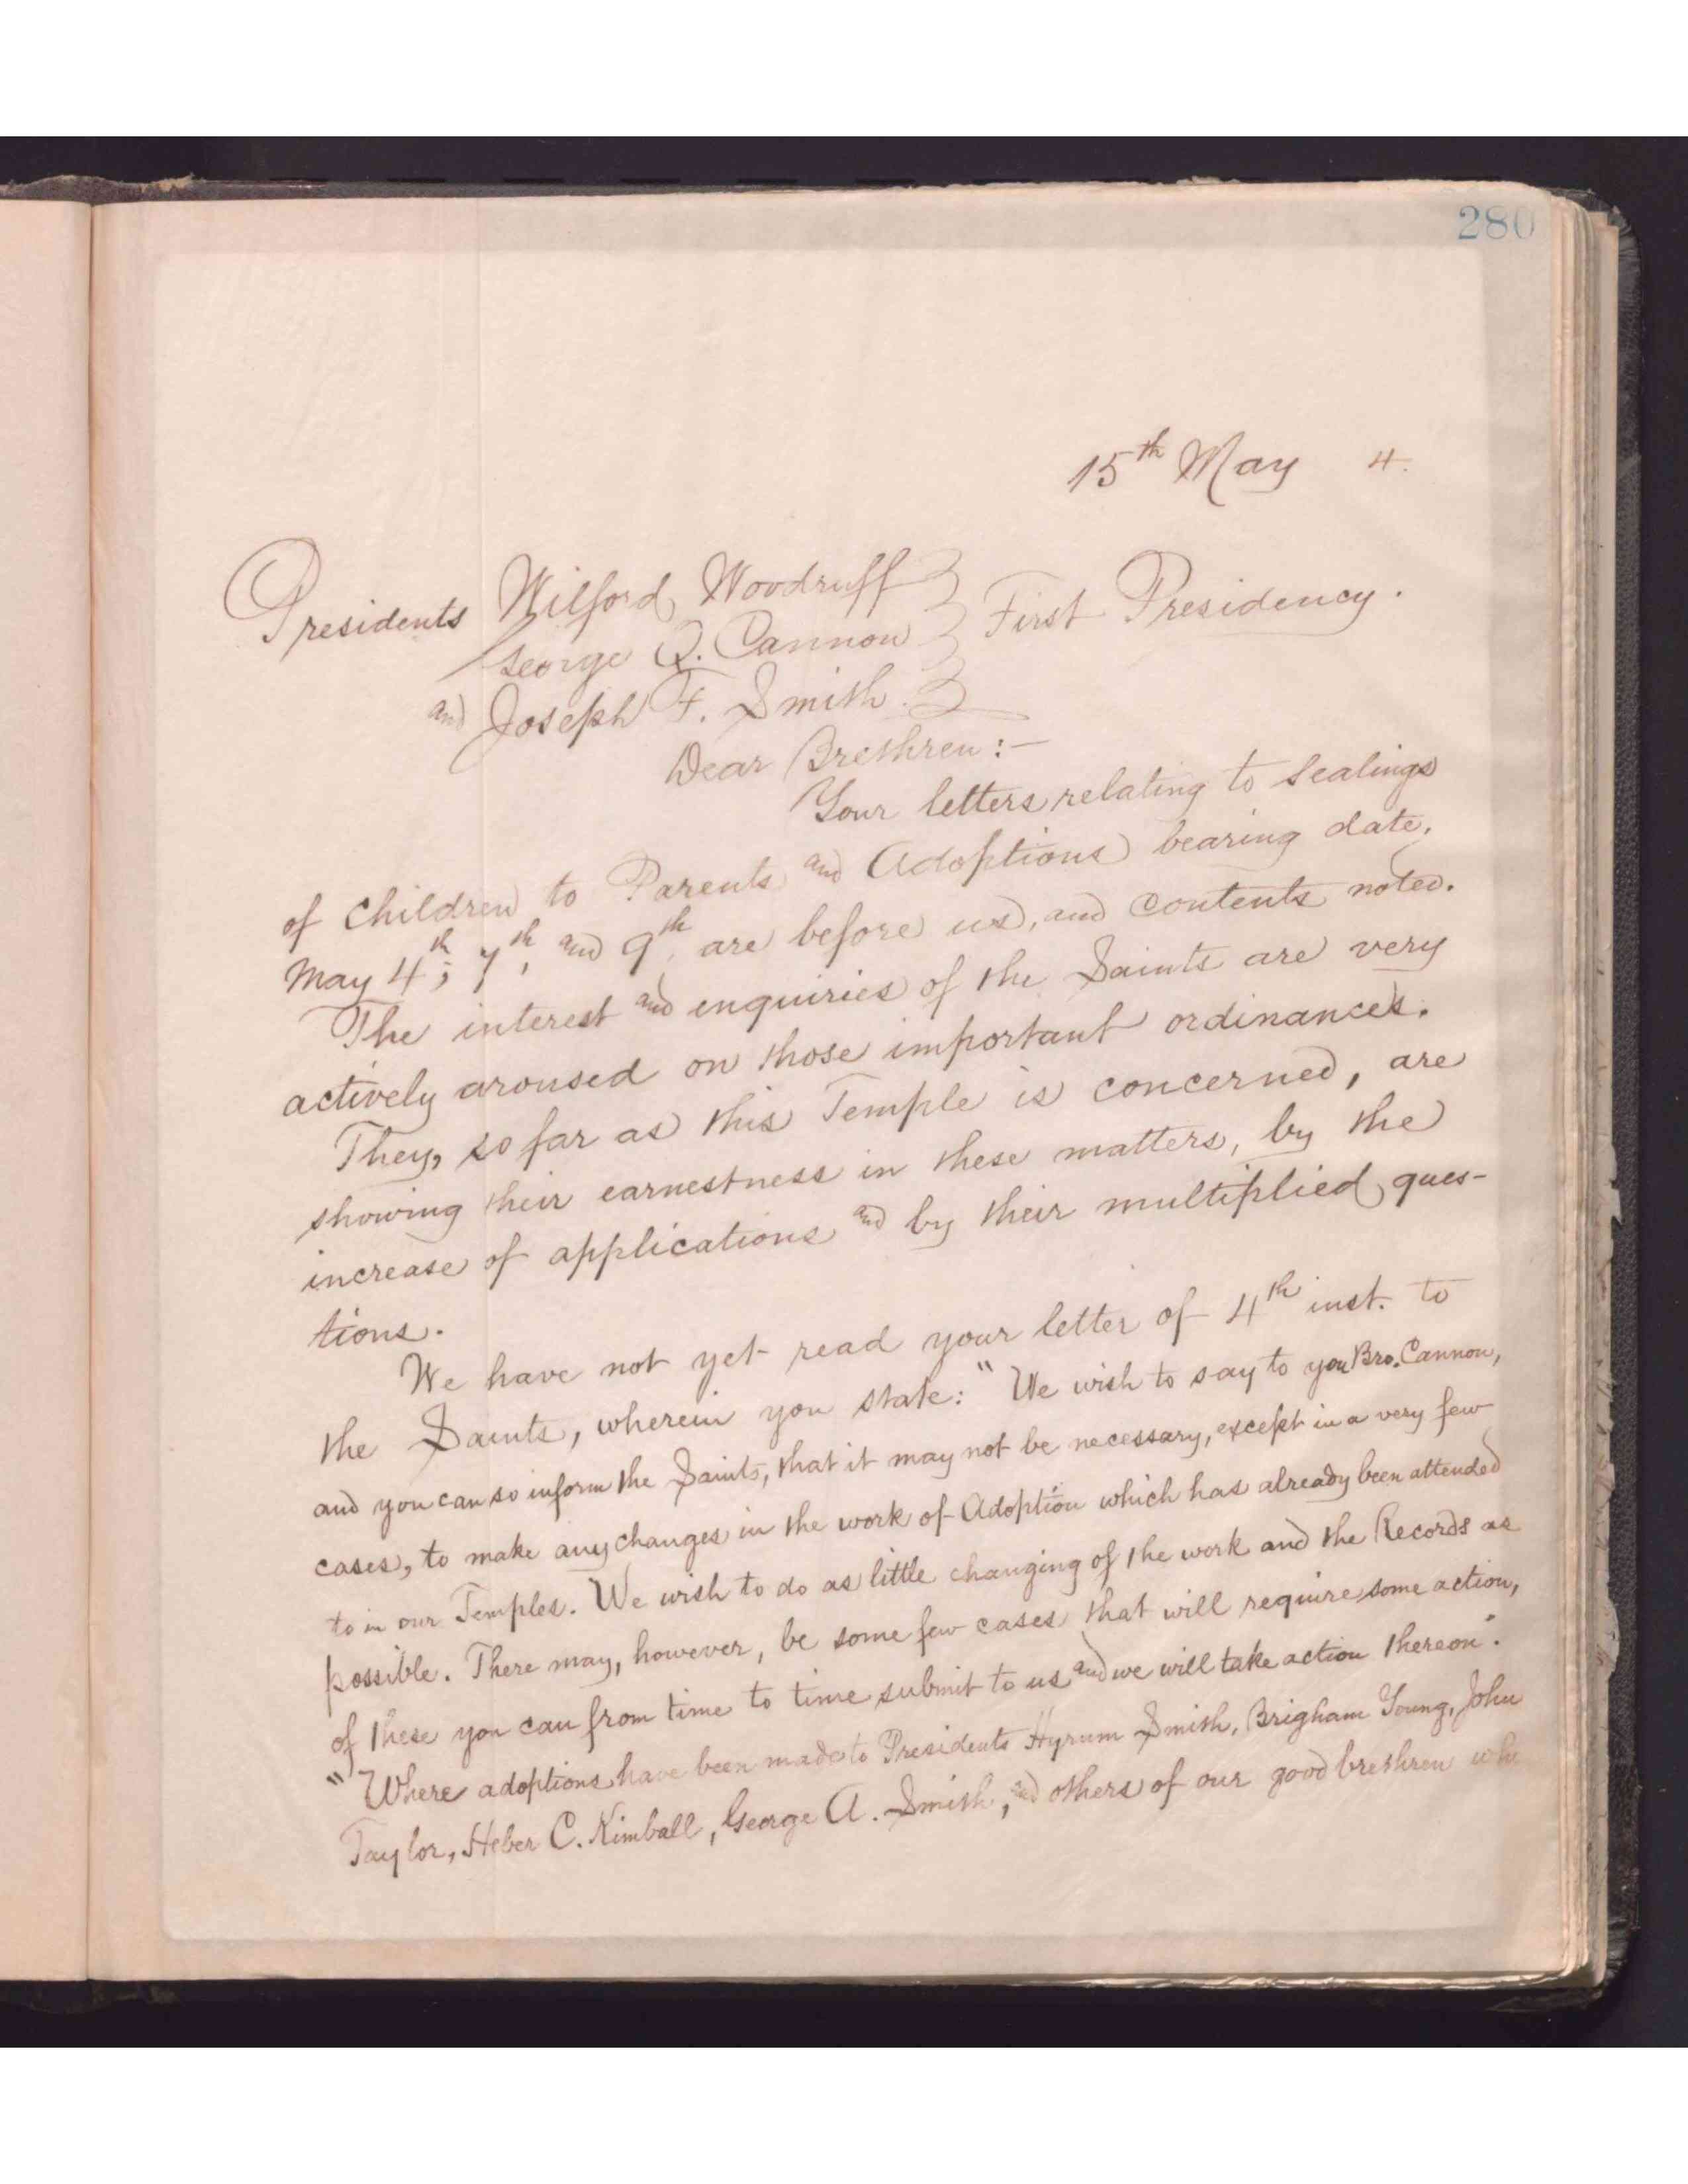 280
15th May 4.
Presidents Wilford Woodruff
George Q. Cannon } First Presidency.
and Joseph F. Smith.
Dear Brethren:—
Your letters relating to Sealings
of Children to Parents and Adoptions bearing date,
May 4th; 7th, and 9th, are before us, and contents noted.
The interest and enquiries of the Saints are very
actively aroused on those important ordinances.
They, so far as this Temple is concerned, are
showing their earnestness in these matters, by the
increase of applications and by their multiplied ques-
tions.
We have not yet read your letter of 4th inst. to
the Saints, wherein you state: "We wish to say to you Bro. Cannon,
and you can so inform the Saints, that it may not be necessary, except in a very few
cases, to make any changes in the work of Adoption which has already been attended
to in our Temples. We wish to do as little changing of the work and the Records as
possible. There may, however, be some few cases that will require some action,
of these you can from time to time submit to us and we will take action thereon".
"Where adoptions have been made to Presidents Hyrum Smith, Brigham Young, John
Taylor, Heber C. Kimball, George A. Smith, and others of our good brethren who